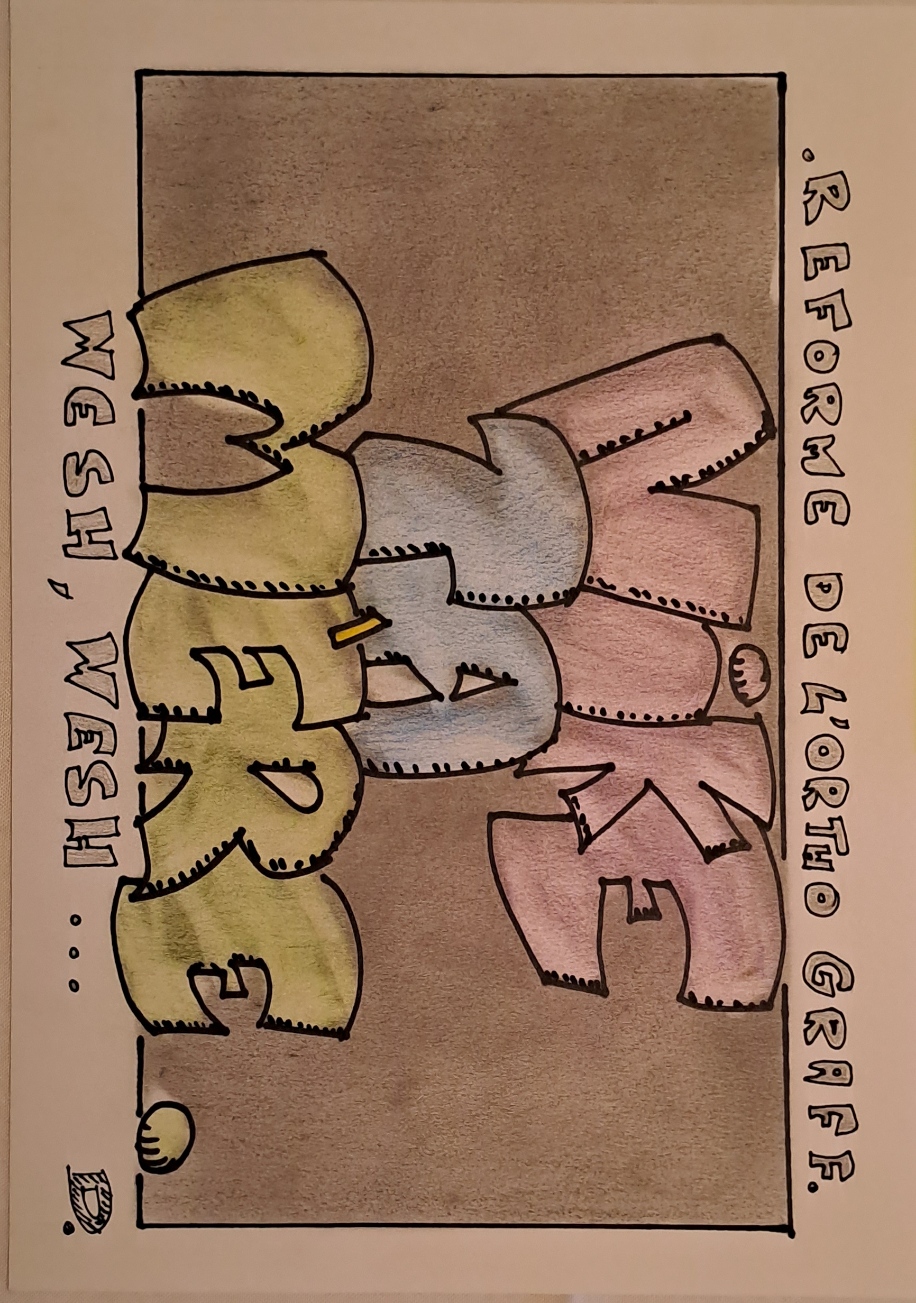 .REFORME DE L'ORTHO GRAFF.
NIKE
LA
MÈRE.
WESH, WESH ...